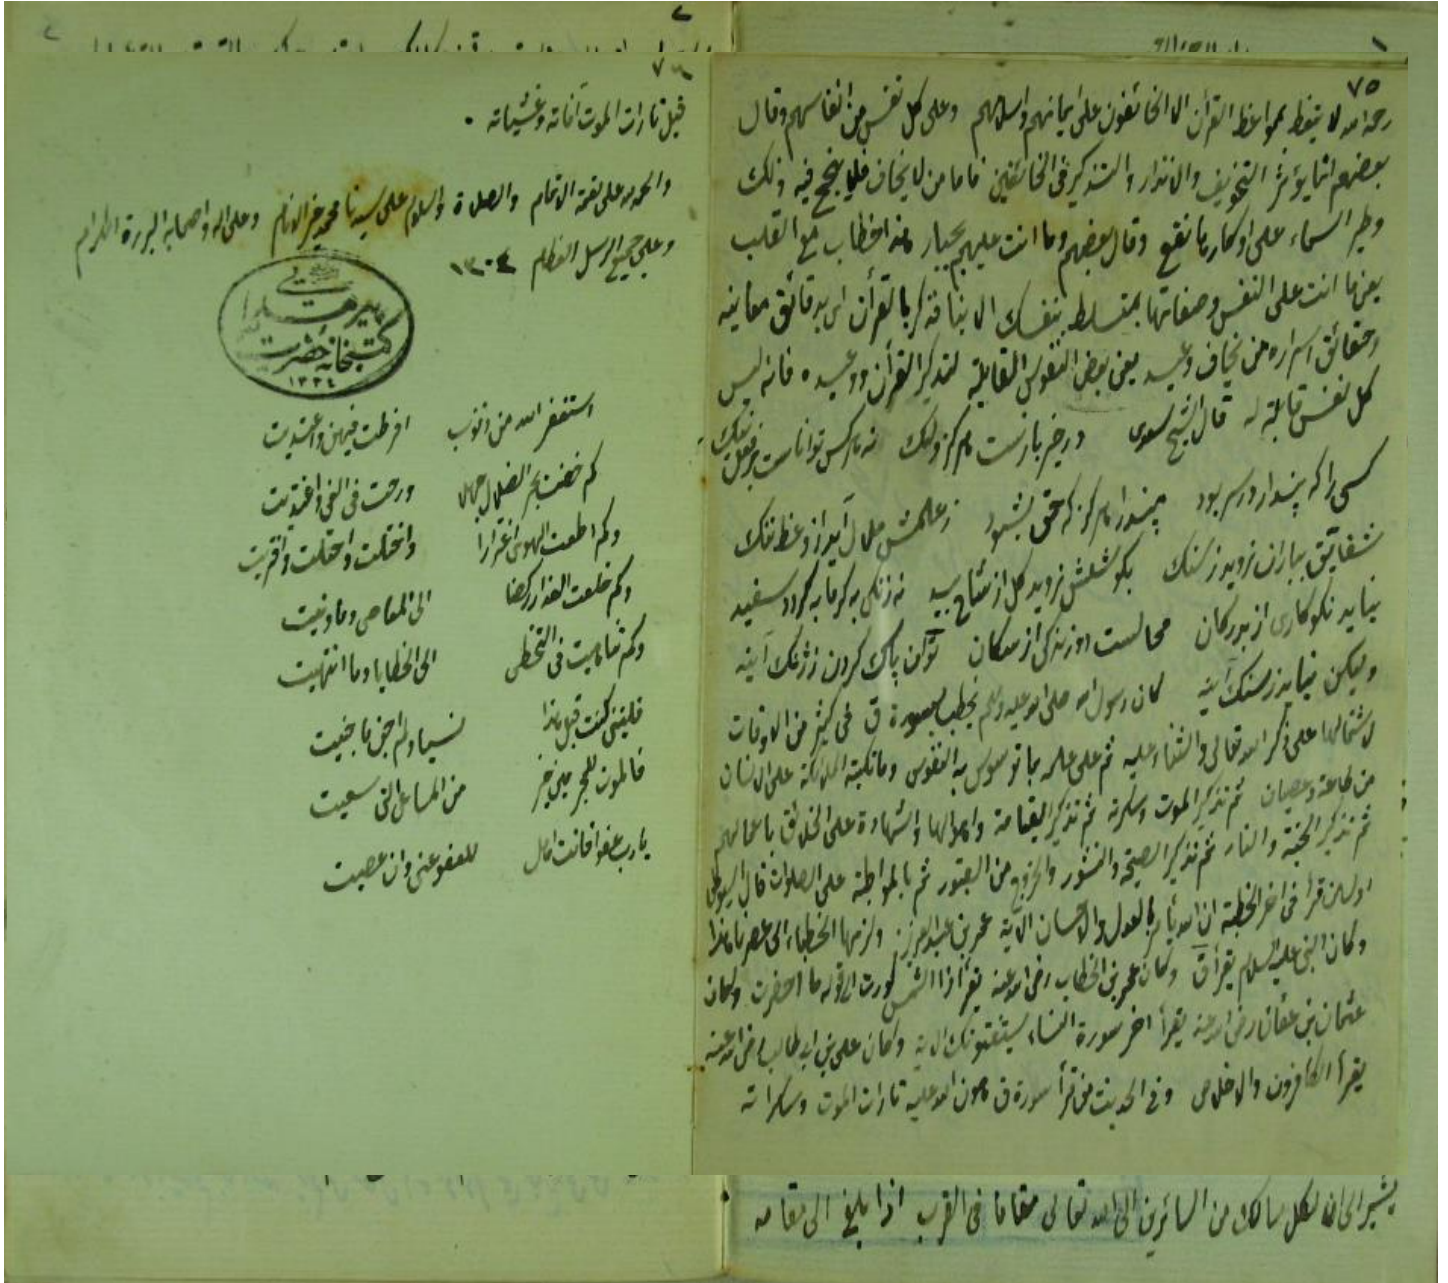 ٧٥
رحمه الله لا يتعظ بمواعظ القرأن الا الخائفون على ايمانهم واسلامهم وعلى كل نفس من انفاسهم وقال
بعضهم انما يؤثر التخويف والانذار والتذكير فى الخائفين فاما من لا يخاف فلا ينجح فيه وذلك
وطير السماء على اوكارها تقع وقال بعضهم وما انت عليهم بجبار هذه الخطاب مع القلب
يعنى ما انت على النفس وصفاتها بمتسلط بنفسك الا بنا فذكر بالقرأن اى بدقائق معانيه
وحقائق اسراره من يخاف وعيد يعنى بعض النفوس القابلة لتذكير القرأن ووعيده فانه ليس
كل نفس قابلة له قال الشيخ سعدى در خير بازست هركز وليك نه هر كس تواناست بر فعل نيك
كسى را كه پندار در سر بود مپندار هركز كه حق بشنود ز علمش ملال آيد از وعظ ننك
شقايق بباران نرويد ز سنك بكوشش نرويد كل از شاخ بيد نه زنكى بكرمابه كردد سفيد
نيايد نكوكارى از بدركان محالست دوزندكى از سكان توان پاك كردن ز ژنك آينه
وليكن نيايد ز سنك آينه كان رسول الله صلى الله عليه وسلم يخطب بسورة ق فى كثير من الاوقات
لاشتمالها على ذكر الله تعالى والثناء عليه ثم على علمه بما توسوس به النفوس وما تكتبه الملائكة على الانسان
من طاعة وعصيان ثم تذكير الموت وسكرته ثم تذكير القيامة واهوالها والشهادة على الخلائق باعمالهم
ثم تذكير الجنة والنار ثم تذكير الصيحة والنشور والخروج من القبور ثم بالمواظبة على الصلوات قال السيوطى
اول من قرأ فى اخر الخطبة ان الله يأمر بالعدل والاحسان الآية عمر بن عبد العزيز ولزمها الخطباء الى عصرنا هذا
وكان النبى عليه السلام يقرأ ق وكان عمر بن الخطاب رضى الله عنه يقرأ اذا الشمس كورت الى قوله ما احضرت وكان
عثمان بن عفان رضى الله عنه يقرأ اخر سورة النساء يستفتونك الآية وكان على بن ابى طالب رضى الله عنه
يقرأ الكافرون والاخلاص وفى الحديث من قرأ سورة ق هون الله عليه تارات الموت وسكراته
يشير الى ان لكل سالك من السائرين الى الله تعالى مقاما فى القرب اذا بلغ الى مقامه
قيل تارات الموت آفاته وغشياته
والحمد لله على نعمة الاتمام والصلاة والسلام على سيدنا محمد خير الانام وعلى اله واصحابه البررة الكرام
وعلى جميع الرسل العظام ١٣٠٤
كتبخانه حضرت
١٣٣٤
استغفر الله من ذنوب افرطت فيهن واعتديت
كم خضت بحر الضلال جهلا ورحت فى الغى واغتديت
وكم اطعت الهوى اغترارا واختلت واحتلت وافتريت
وكم خلعت العذار ركضا الى المعاصى وما ونيت
وكم تناهيت فى التخطى الى الخطايا وما انتهيت
فليتنى كنت قبل هذا نسيا ولم اجن ما جنيت
فالموت للمجرمين خير من المساعى التى سعيت
يا رب عفوا فانت اهل للعفو عنى وان عصيت